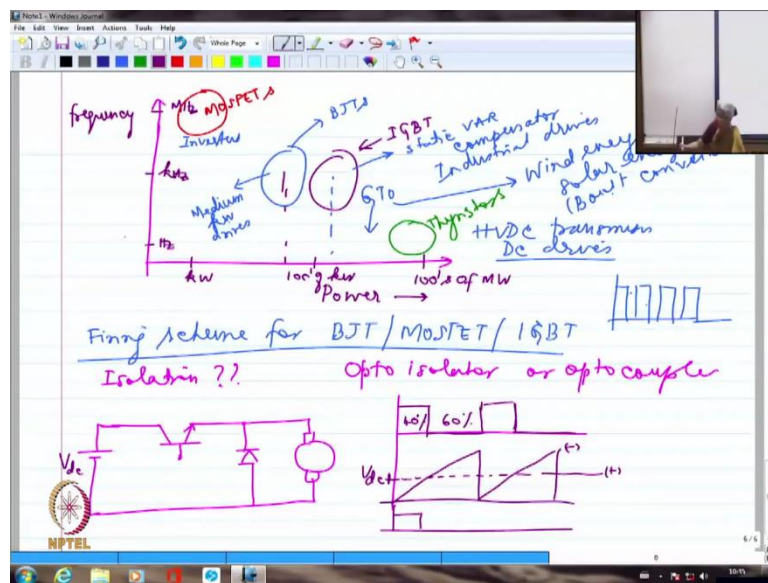 Note1 - Windows Journal
File Edit View Insert Actions Tools Help
Whole Page
frequency
MHz MOSFETs
Inverter
BJTs
IGBT
static VAR
compensator
Industrial drives
kHz
Medium
power
drives
GTO
Wind energy
solar
(Boost conver
Thyristors
HVDC transmission
DC drives
Hz
kW
100's kW
100's of MW
Power →
Firing scheme for BJT/MOSFET/IGBT
Isolation ??
Opto isolator or optocoupler
40% 60%
Vdc
Vdc
(-)
(+)
NPTEL
6/6
10:45